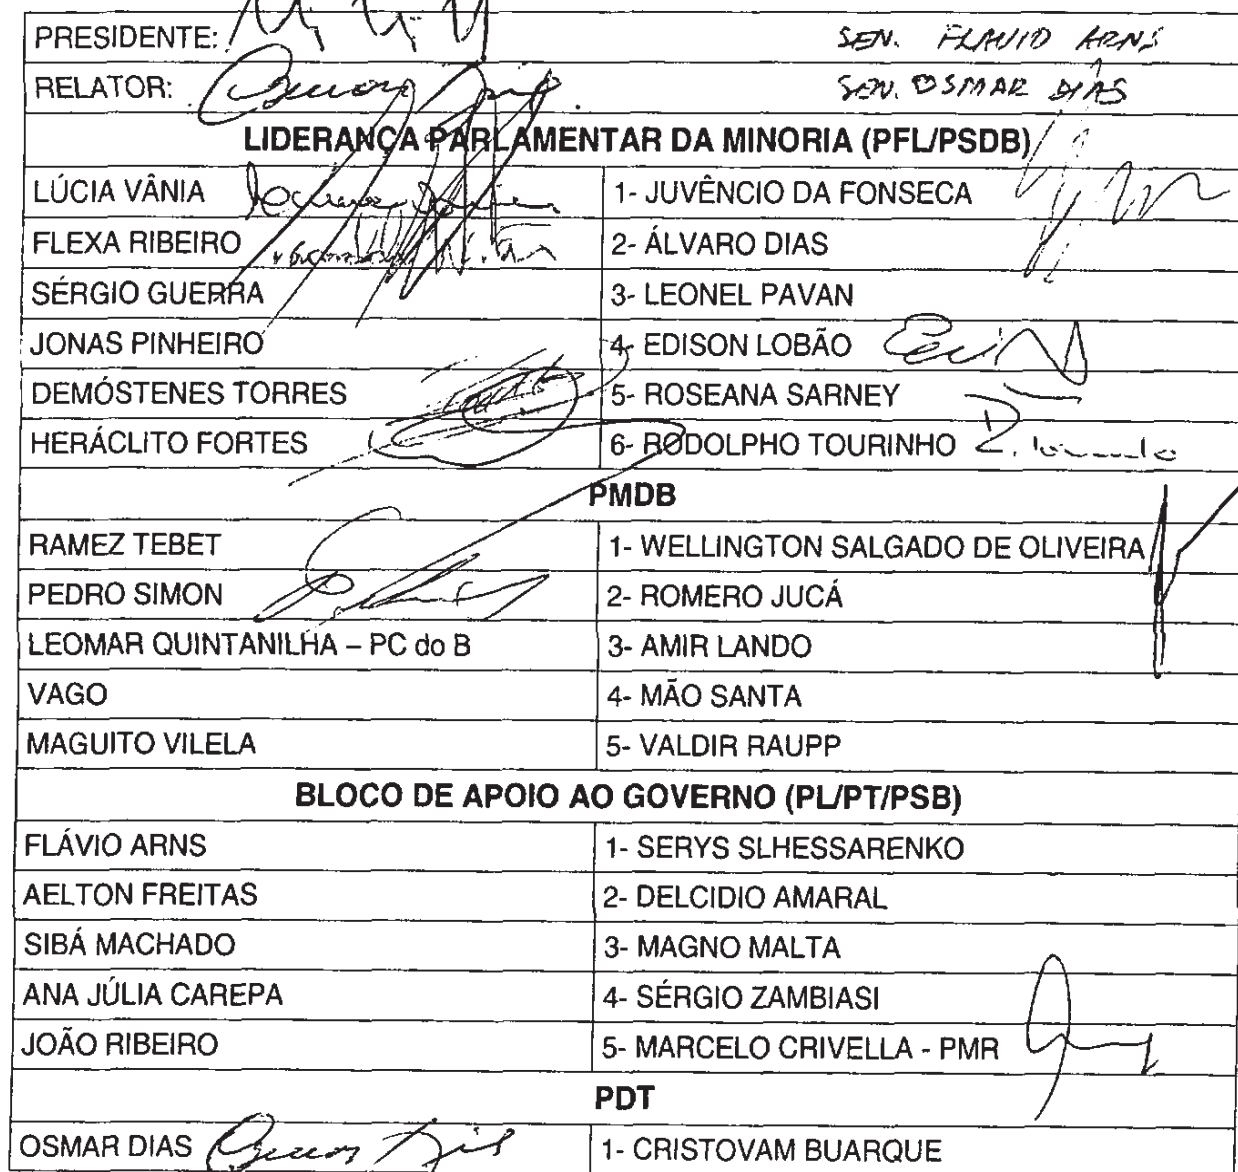 PRESIDENTE: SEN. FLAVIO ARNS
RELATOR: SEN. OSMAR DIAS
LIDERANÇA PARLAMENTAR DA MINORIA (PFL/PSDB)
LÚCIA VÂNIA 1- JUVÊNCIO DA FONSECA
FLEXA RIBEIRO 2- ÁLVARO DIAS
SÉRGIO GUERRA 3- LEONEL PAVAN
JONAS PINHEIRO 4- EDISON LOBÃO
DEMÓSTENES TORRES 5- ROSEANA SARNEY
HERÁCLITO FORTES 6- RODOLPHO TOURINHO
PMDB
RAMEZ TEBET 1- WELLINGTON SALGADO DE OLIVEIRA
PEDRO SIMON 2- ROMERO JUCÁ
LEOMAR QUINTANILHA – PC do B 3- AMIR LANDO
VAGO 4- MÃO SANTA
MAGUITO VILELA 5- VALDIR RAUPP
BLOCO DE APOIO AO GOVERNO (PL/PT/PSB)
FLÁVIO ARNS 1- SERYS SLHESSARENKO
AELTON FREITAS 2- DELCIDIO AMARAL
SIBÁ MACHADO 3- MAGNO MALTA
ANA JÚLIA CAREPA 4- SÉRGIO ZAMBIASI
JOÃO RIBEIRO 5- MARCELO CRIVELLA - PMR
PDT
OSMAR DIAS 1- CRISTOVAM BUARQUE